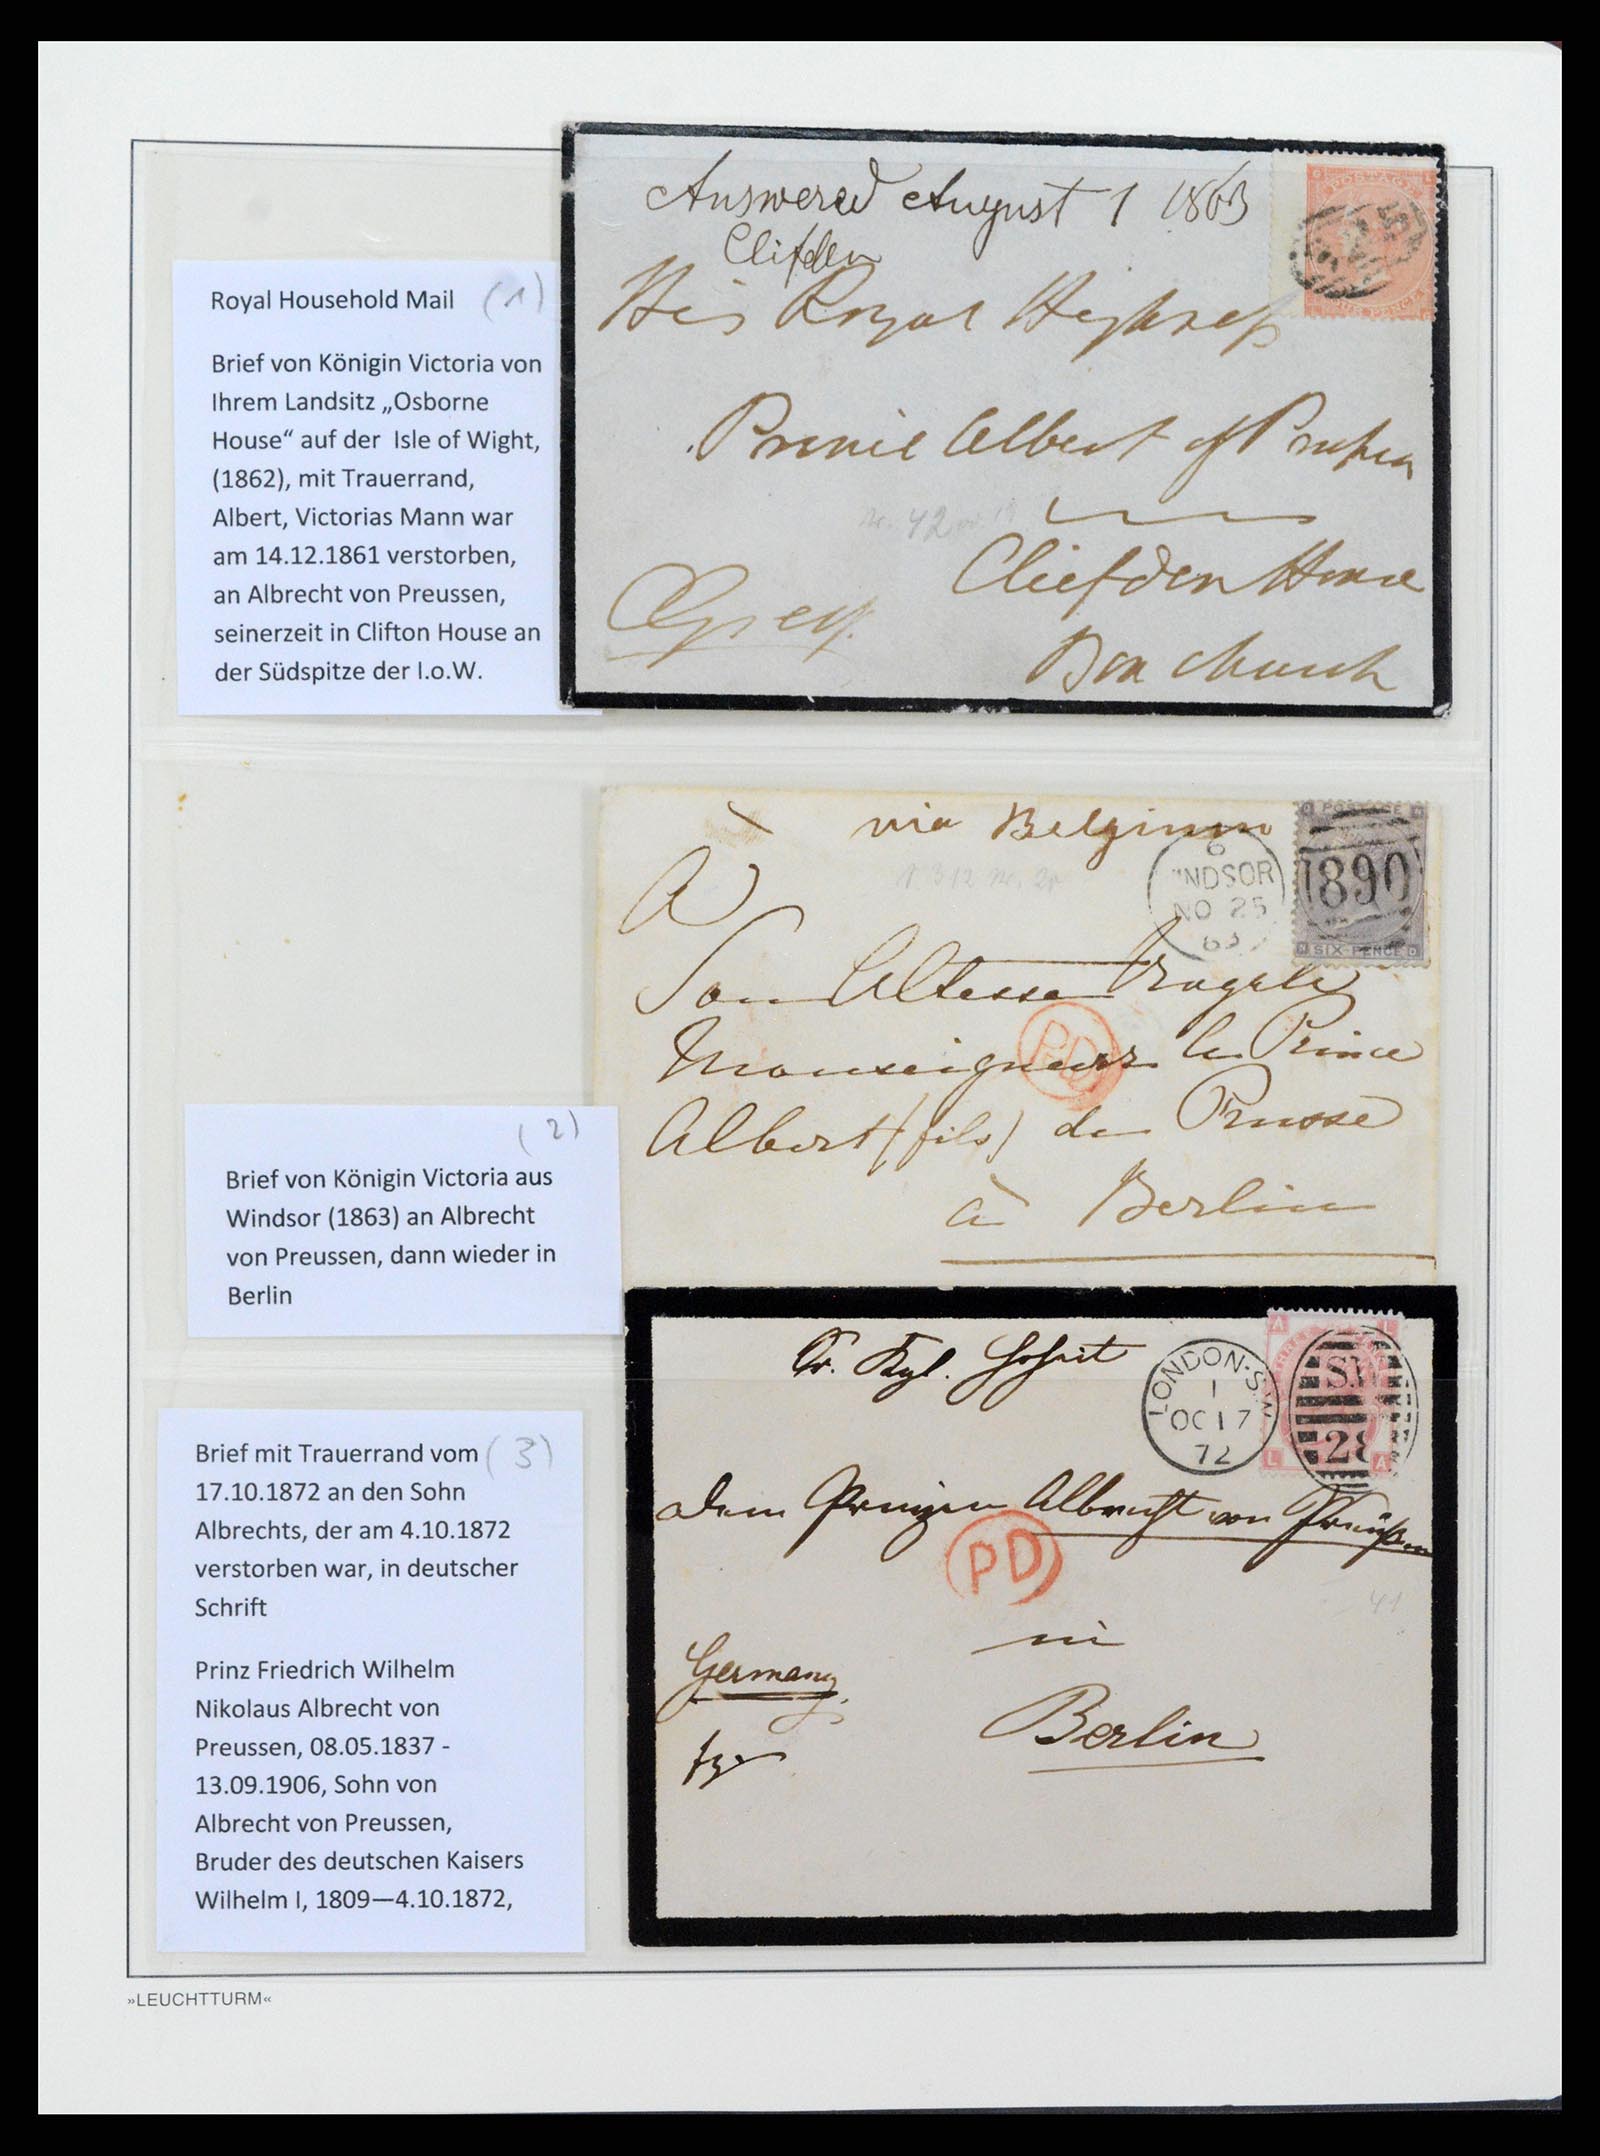 Royal Household Mail (1)
Brief von Königin Victoria von
Ihrem Landsitz „Osborne
House“ auf der Isle of Wight,
(1862), mit Trauerrand,
Albert, Victorias Mann war
am 14.12.1861 verstorben,
an Albrecht von Preussen,
seinerzeit in Clifton House an
der Südspitze der I.o.W.
Answered August 1 1863
Clifden
His Royal Highness
Prince Albert of Prussia
Cliefden House
Bonchurch
POSTAGE
(2)
Brief von Königin Victoria aus
Windsor (1863) an Albrecht
von Preussen, dann wieder in
Berlin
via Belgium
6
INDSOR
NO 25
63
POSTAGE
890
SIX-PENCE
A
Son Altesse Royale
Monseigneur le Prince
Albert (fils) de Prusse
à Berlin
PD
Brief mit Trauerrand vom (3)
17.10.1872 an den Sohn
Albrechts, der am 4.10.1872
verstorben war, in deutscher
Schrift
Prinz Friedrich Wilhelm
Nikolaus Albrecht von
Preussen, 08.05.1837 -
13.09.1906, Sohn von
Albrecht von Preussen,
Bruder des deutschen Kaisers
Wilhelm I, 1809—4.10.1872,
Sr. Kgl. Hoheit
LONDON·S.W
1
OC 17
72
A L
THREE
S.W
28
L A
dem Prinzen Albrecht von Preußen
PD
in
41
Germany
Berlin
»LEUCHTTURM«